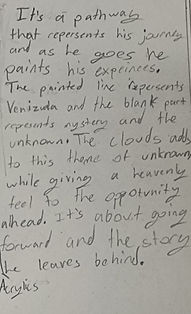 It's a pathway
that repersents his journey
and as he goes he
paints his expeinces.
The painted line repersents
Venizuda and the blank part
represents mystery and the
unknown. The clouds adds
to this theme of unknown
while giving a heavenly
feel to the oppotunity
ahead. It's about going
forward and the story
he leaves behind.
Acrylics